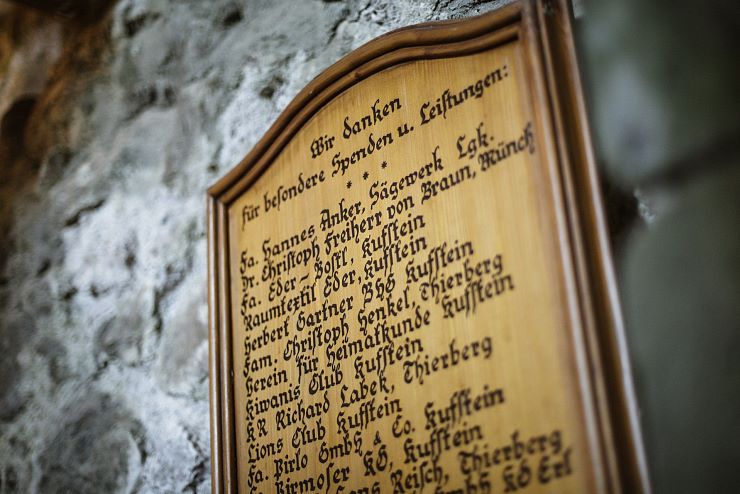 Wir danken
für besondere Spenden u. Leistungen:
* * *
Fa. Hannes Anker, Sägewerk Lgk.
Dr. Christoph Freiherr von Braun, Münch
Fa. Eder-Bostl, Kufstein
Raumtextil Eder, Kufstein
Herbert Gartner BHG Kufstein
Fam. Christoph Henkel, Thierberg
Verein für Heimatkunde Kufstein
Kiwanis Club Kufstein
KR Richard Labek, Thierberg
Lions Club Kufstein
Fa. Pirlo GmbH & Co. Kufstein
Pirmoser KG, Kufstein
Reisch, Thierberg
GmbH KG Erl